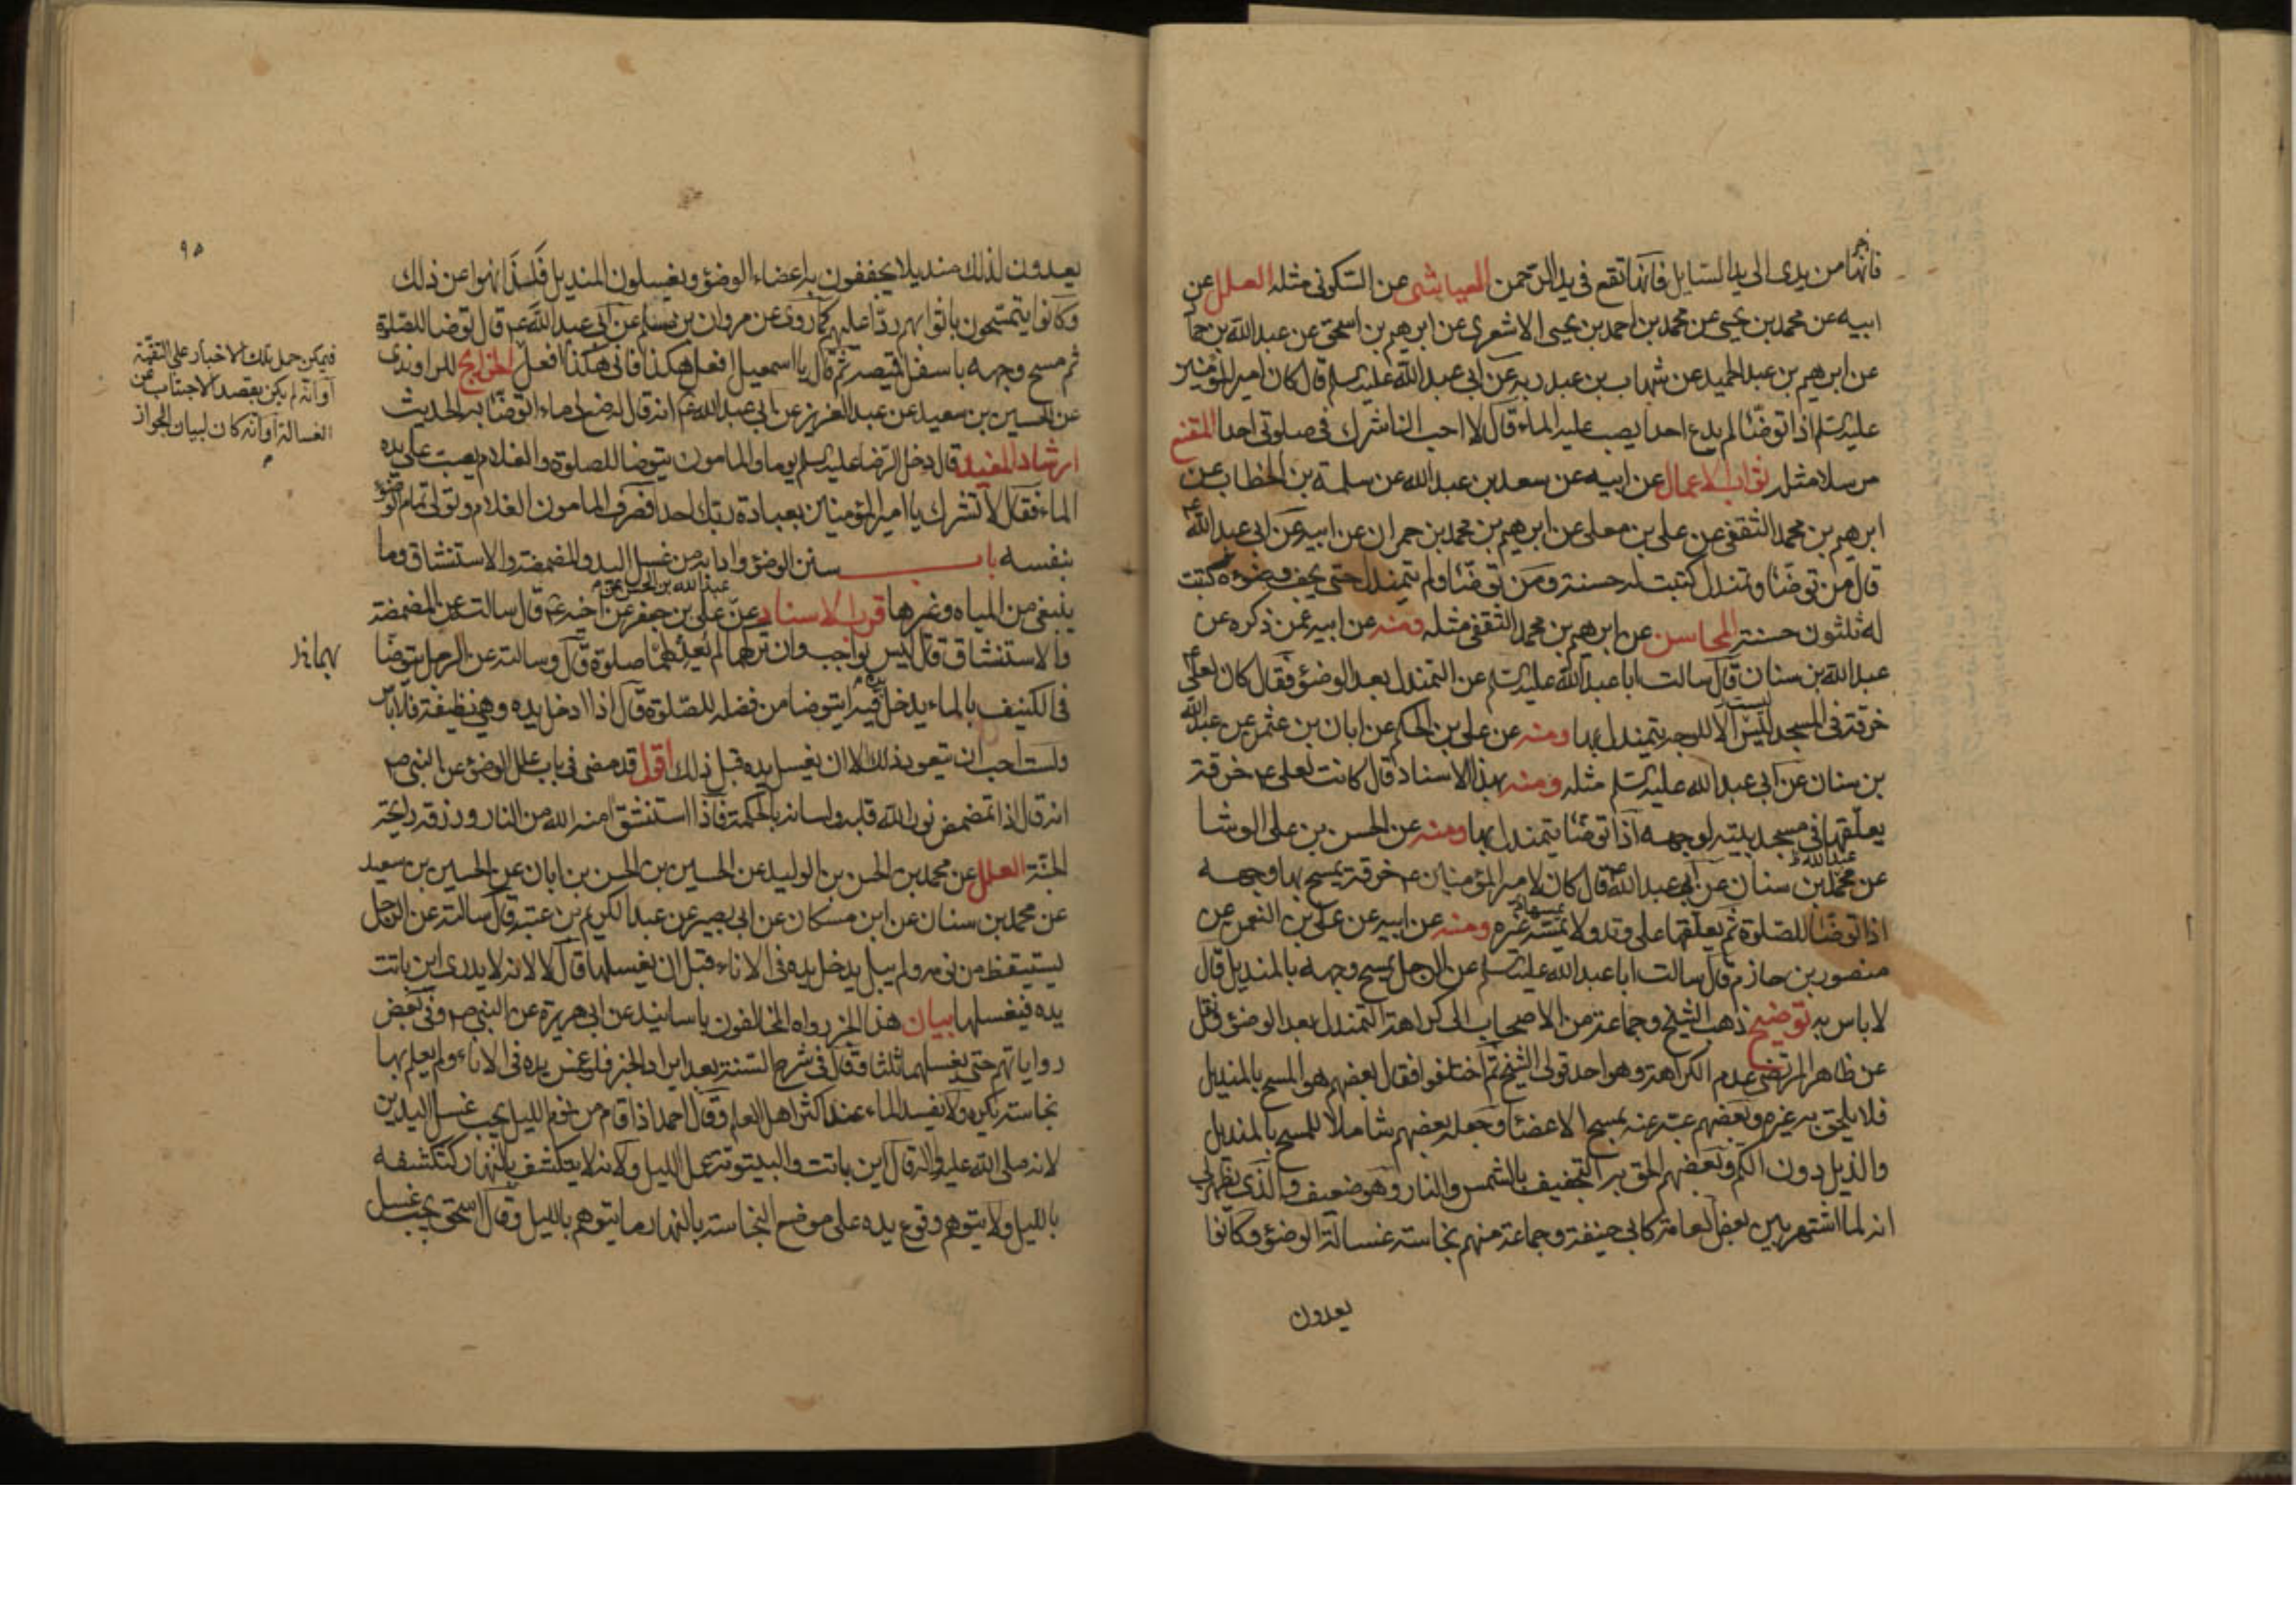 فانها من يدى الى يد السايل فانها تقع فى يد الرحمن العياشى عن السكونى مثله العلل عن
ابيه عن محمد بن يحيى عن محمد بن احمد بن يحيى الاشعرى عن ابرهيم بن اسحق عن عبدالله بن حما
عن ابرهيم بن عبد الحميد عن شهاب بن عبد ربه عن ابى عبد الله عليه السلم قال كان امير المؤمنين
عليه السلم اذا توضا لم يدع احدا يصب عليه الماء قال لا احب ان اشرك فى صلوتى احدا المقنع
مرسلا مثله ثواب الاعمال عن ابيه عن سعد بن عبد الله عن سلمة بن الخطاب عن
ابرهيم بن محمد الثقفى عن على بن معلى عن ابرهيم بن محمد بن حمران عن ابيه عن ابى عبد الله ع
قال من توضا وتمندل كتبت له حسنة ومن توضا ولم يتمندل حتى يجف وضوءه كتبت
له ثلثون حسنة المحاسن عن ابرهيم بن محمد الثقفى مثله ومنه عن ابيه عمن ذكره عن
عبد الله بن سنان قال سالت ابا عبد الله عليه السلم عن التمندل بعد الوضوء فقال كان لعلى ع
خرقة فى المسجد ليس الا للوجه يتمندل بها ومنه عن على بن الحكم عن ابان بن عثمن عن عبد الله
بن سنان عن ابى عبد الله عليه السلم مثله ومنه بهذا الاسناد قال كانت لعلى ع خرقة
يعلقها فى مسجد بيته لوجهه اذا توضا يتمندل بها ومنه عن الحسن بن على الوشا
عبد الله
عن محمد بن سنان عن ابى عبد الله ع قال كان لامير المؤمنين ع خرقة يمسح بها وجهه
اذا توضا للصلوة ثم يعلقها على وتد ولا يمسه غيره ومنه عن ابيه عن على بن النعمن عن
منصور بن حازم قال سالت ابا عبد الله عليه السلم عن الرجل يمسح وجهه بالمنديل قال
لا باس به توضيح ذهب الشيخ وجماعة من الاصحاب الى كراهة التمندل بعد الوضوء ونقل
عن ظاهر المرتضى عدم الكراهة وهو احد قولى الشيخ ثم اختلفوا فقال بعضهم هو المسح بالمنديل
فلا يلحق به غيره وبعضهم عبر عنه بمسح الاعضاء وجعله بعضهم شاملا للمسح بالمنديل
والذيل دون الكم وبعضهم الحق به التجفيف بالشمس والنار وهو ضعيف والذى يظهر لى
انه لما اشتهر بين بعض العامة كابى حنيفة وجماعة منهم نجاسة غسالة الوضوء وكانوا
يعدون
٩٥
يعدون لذلك منديلا يجففون به اعضاء الوضوء ويغسلون المنديل فلذا نهوا عن ذلك
وكانوا يتمسحون باثوابهم ردا عليهم كما روى عن مروان بن مسلم عن ابى عبد الله ع قال توضا للصلوة
ثم مسح وجهه باسفل قميصه ثم قال يا اسمعيل افعل هكذا فانى هكذا افعل الخرايج للراوندى
عن الحسين بن سعيد عن عبد العزيز عن ابى عبد الله ع انه قال له ضع لى ماء اتوضا به الحديث
ارشاد المفيد قال دخل الرضا عليه السلم يوما والمامون يتوضا للصلوة والغلام يصب على يده
الماء فقال لا تشرك يا امير المؤمنين بعبادة ربك احدا فصرف المامون الغلام وتولى تمام الوضوء
بنفسه باب سنن الوضوء وادابه من غسل اليد والمضمضة والاستنشاق وما
عبد الله بن الحسن
ينبغى من المياه وغيرها قرب الاسناد عن على بن جعفر عن اخيه ع قال سالته عن المضمضة
والاستنشاق قال ليس بواجب وان تركهما لم يعد لهما صلوة قال وسالته عن الرجل يتوضا
فى الكنيف بالماء يدخل يده فيه ايتوضا من فضله للصلوة قال اذا ادخل يده وهى نظيفة فلا باس
ولست احب ان يتعود ذلك الا ان يغسل يده قبل ذلك اقول قد مضى فى باب علل الوضوء عن النبى ص
انه قال اذا تمضمض نور الله قلبه ولسانه بالحكمة فاذا استنشق امنه الله من النار ورزقه رايحة
الجنة العلل عن محمد بن الحسن بن الوليد عن الحسين بن الحسن بن ابان عن الحسين بن سعيد
عن محمد بن سنان عن ابن مسكان عن ابى بصير عن عبد الكريم بن عتبة قال سالته عن الرجل
يستيقظ من نومه ولم يبل يدخل يده فى الاناء قبل ان يغسلها قال لا لانه لا يدرى اين باتت
يده فيغسلها بيان هذا الخبر رواه المخالفون باسانيد عن ابى هريرة عن النبى ص وفى بعض
رواياتهم حتى يغسلها ثلثا وقال فى شرح السنة بعد ايراد الخبر فلو غمس يده فى الاناء ولم يعلم بها
نجاسة يكره ولا يفسد الماء عند اكثر اهل العلم وقال احمد اذا قام من نوم الليل يجب غسل اليدين
لانه صلى الله عليه واله قال اين باتت والبيتوتة عمل الليل ولانه لا يتكشف بالنهار كتكشفه
بالليل ولا يتوهم وقوع يده على موضع النجاسة بالنهار ما يتوهم بالليل وقال اسحق يجب غسل
فيمكن حمل تلك الاخبار على التقية
او انه لم يكن بقصد الاجتناب عن
الغسالة او انه كان لبيان الجواز